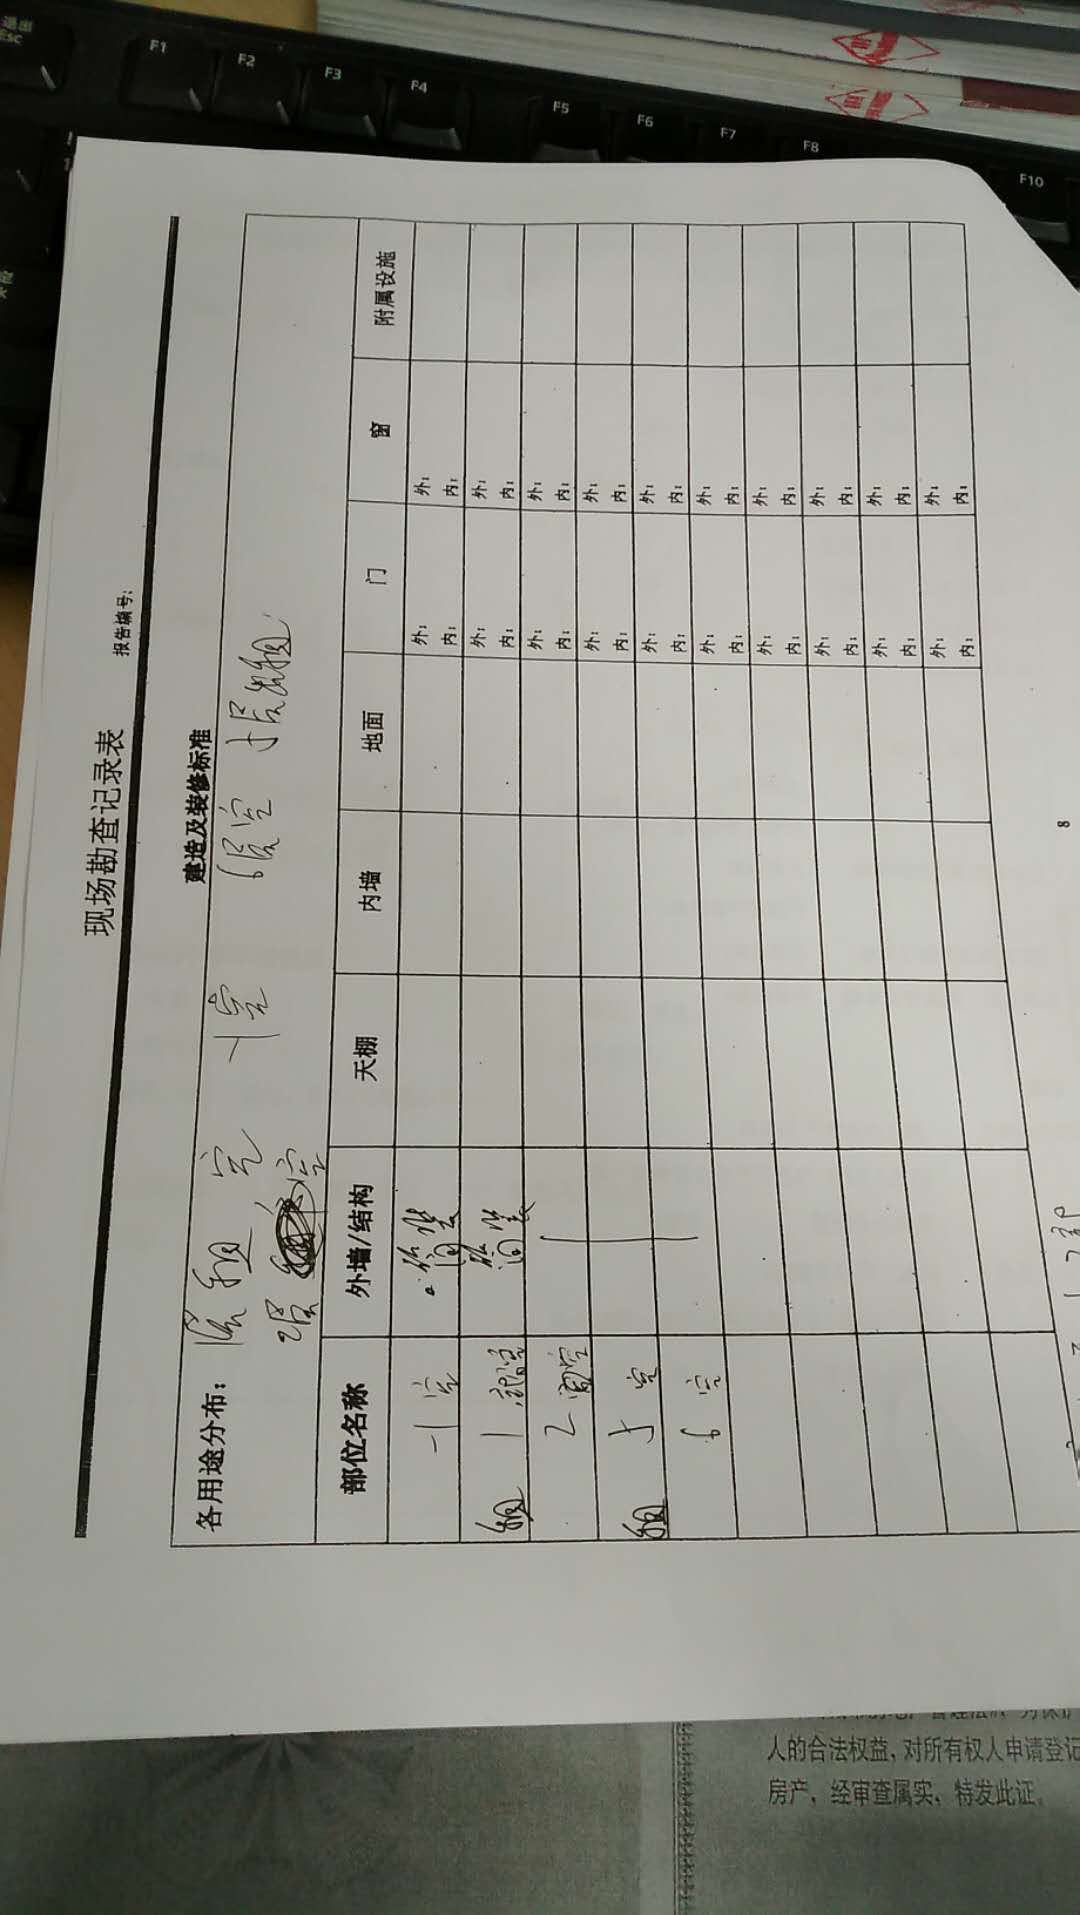 退出
ESC
F1
F2
F3
F4
F5
F6
F7
F8
F10
现场勘查记录表
报告编号:
建造及装修标准
各用途分布: 租 空 -1空 6层空 5层租
2层 空
部位名称 外墙/结构 天棚 内墙 地面 门 窗 附属设施
-1空 简装 外: 内: 外: 内:
租 1 空 简装 外: 内: 外: 内:
2 空 外: 内: 外: 内:
租 5 空 外: 内: 外: 内:
6 空 外: 内: 外: 内:
外: 内: 外: 内:
外: 内: 外: 内:
外: 内: 外: 内:
外: 内: 外: 内:
外: 内: 外: 内:
8
人的合法权益,对所有权人申请登记
房产,经审查属实,特发此证。